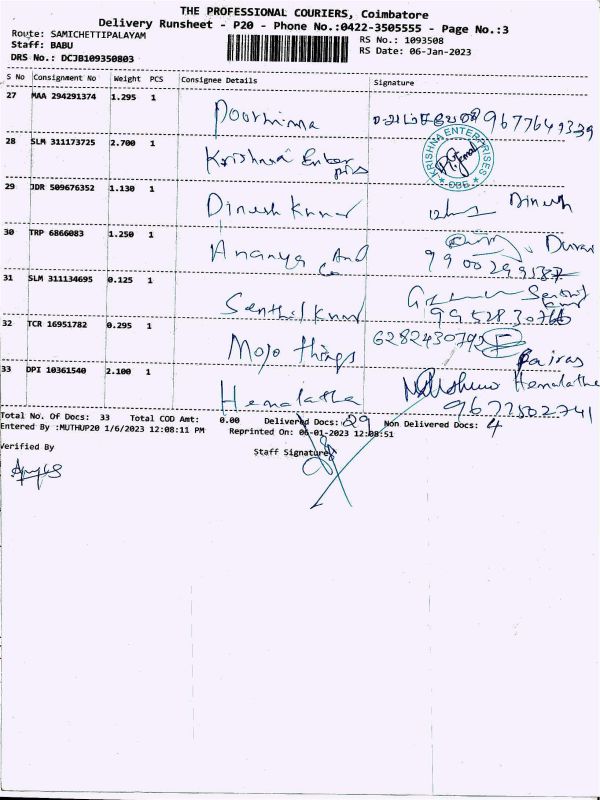 THE PROFESSIONAL COURIERS, Coimbatore
Delivery Runsheet - P20 - Phone No.:0422-3505555 - Page No.:3
Route: SAMICHETTIPALAYAM RS No.: 1093508
Staff: BABU RS Date: 06-Jan-2023
DRS No.: DCJB109350803
S No Consignment No Weight PCS Consignee Details Signature
27 MAA 294291374 1.295 1
Poornima 9677641339
28 SLM 311173725 2.700 1
Krishna Enter
priss
KRISHNA ENTERPRISES
CBE
29 JDR 509676352 1.130 1
Dinesh Kumar Dinesh
30 TRP 6866083 1.250 1
Ananya And
Co
31 SLM 311134695 0.125 1
Senthil Kumar
9952830766
32 TCR 16951782 0.295 1
Mojo things 6282430792
33 DPI 10361540 2.100 1
Hemalatha Hemalatha
Total No. Of Docs: 33 Total COD Amt: 0.00 Delivered Docs: 29 Non Delivered Docs: 4
Entered By :MUTHUP20 1/6/2023 12:08:11 PM Reprinted On: 06-01-2023 12:08:51
Verified By Staff Signature